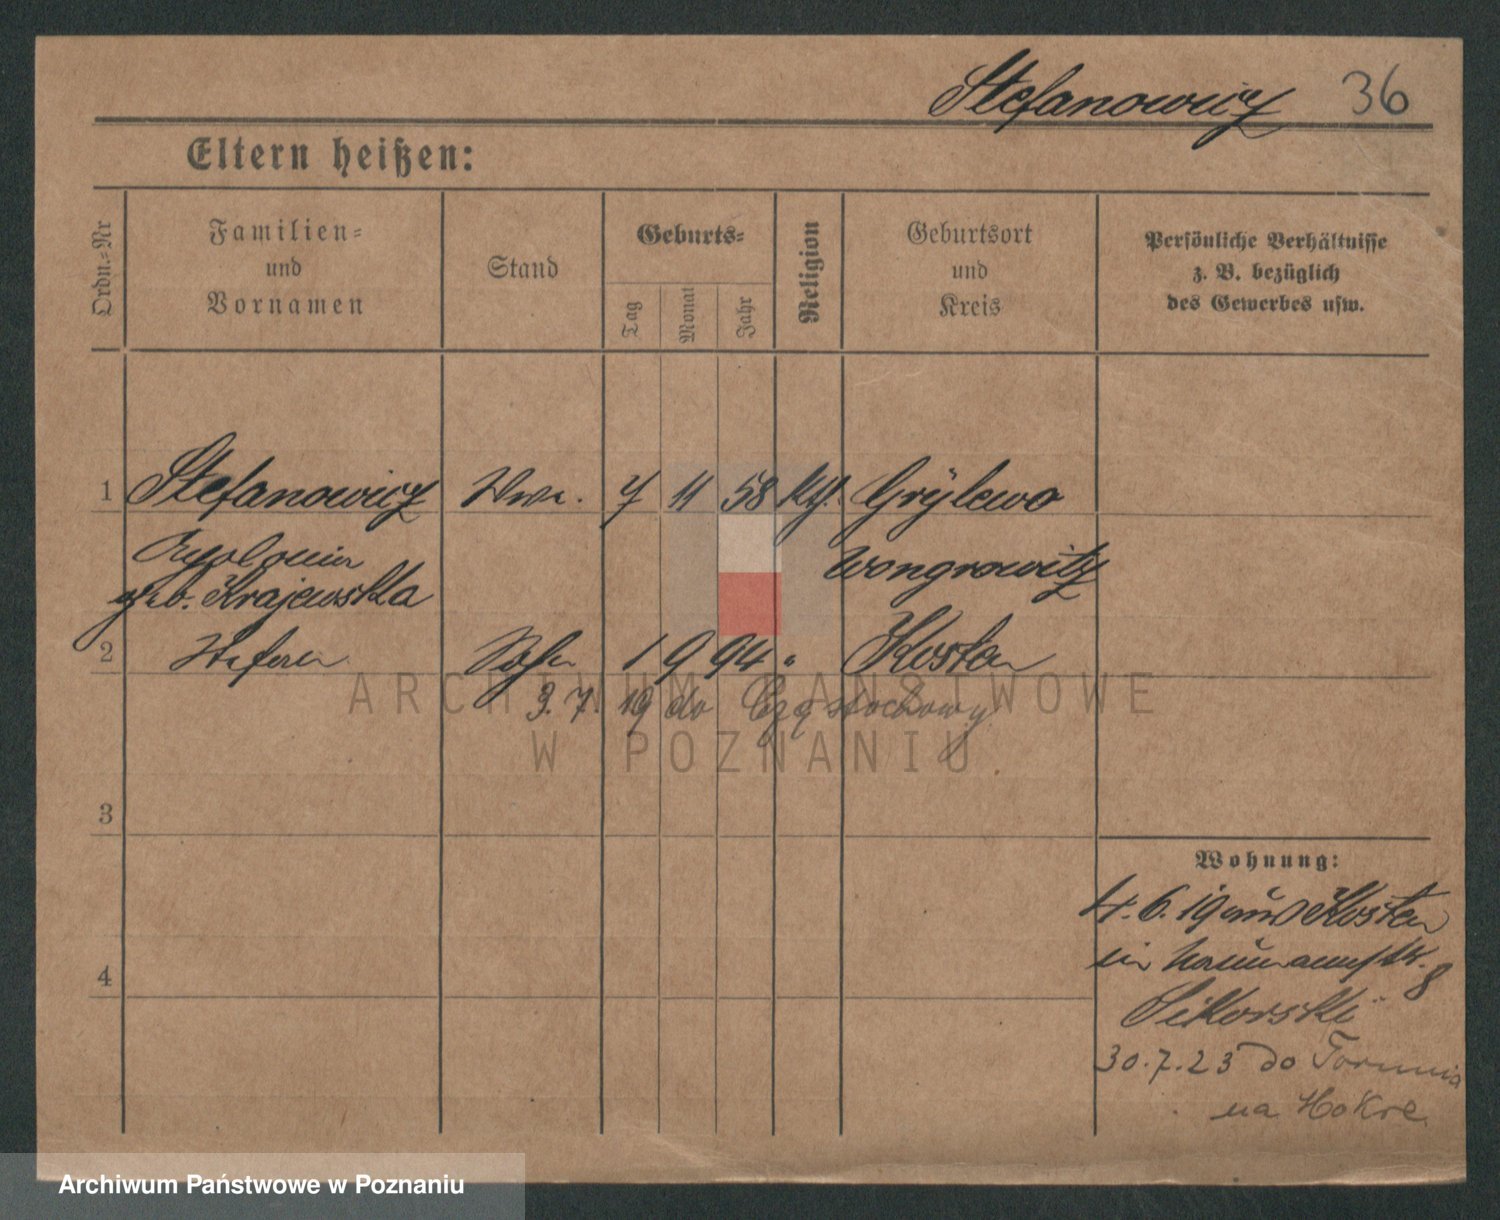 Stefanowicz 36
Eltern heißen:
Ordn.-Nr
Familien-
und
Vornamen
Stand
Geburts-
Tag
Monat
Jahr
Religion
Geburtsort
und
Kreis
Persönliche Verhältnisse
z. B. bezüglich
des Gewerbes usw.
1 Stefanowicz Wwe. 7 11 58 kth. Grylewo
Apolonia Wongrowitz
geb. Krajewska
2 Stefan Sohn 1 9 94 " Kosten
3. 7. 19 do Częstochowy
3
4
Wohnung:
4. 6. 19 aus Kosten
in Naumannstr. 8
Sikorski
30.7.23 do Torunia
na Mokre
ARCHIWUM PAŃSTWOWE
W POZNANIU
Archiwum Państwowe w Poznaniu